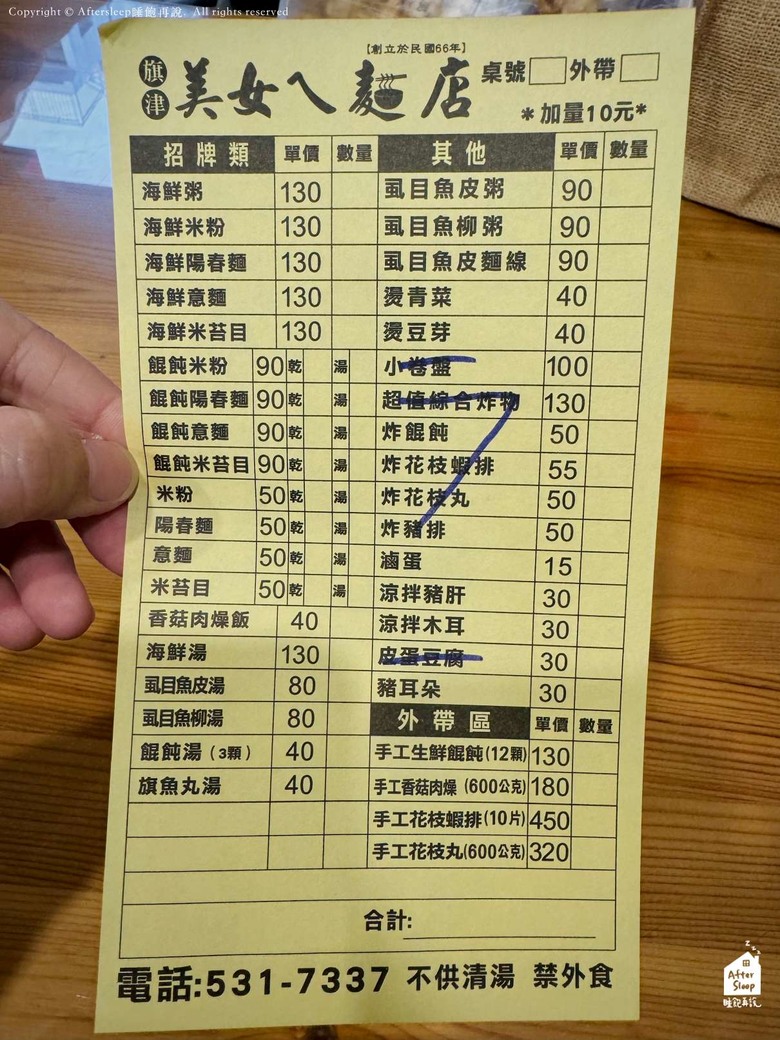 Copyright © Aftersleep睡飽再說. All rights reserved
【創立於民國66年】
旗津 美女人麵店 桌號 外帶
*加量10元*
招牌類 單價 數量
海鮮粥 130
海鮮米粉 130
海鮮陽春麵 130
海鮮意麵 130
海鮮米苔目 130
餛飩米粉 90 乾 湯
餛飩陽春麵 90 乾 湯
餛飩意麵 90 乾 湯
餛飩米苔目 90 乾 湯
米粉 50 乾 湯
陽春麵 50 乾 湯
意麵 50 乾 湯
米苔目 50 乾 湯
香菇肉燥飯 40
海鮮湯 130
虱目魚皮湯 80
虱目魚柳湯 80
餛飩湯(3顆) 40
旗魚丸湯 40
其他 單價 數量
虱目魚皮粥 90
虱目魚柳粥 90
虱目魚皮麵線 90
燙青菜 40
燙豆芽 40
小卷盤 100
超值綜合炸物 130
炸餛飩 50
炸花枝蝦排 55
炸花枝丸 50
炸豬排 50
滷蛋 15
涼拌豬肝 30
涼拌木耳 30
皮蛋豆腐 30
豬耳朵 30
外帶區 單價 數量
手工生鮮餛飩(12顆) 130
手工香菇肉燥(600公克) 180
手工花枝蝦排(10片) 450
手工花枝丸(600公克) 320
合計:
電話:531-7337 不供清湯 禁外食
After
Sleep
睡飽再說